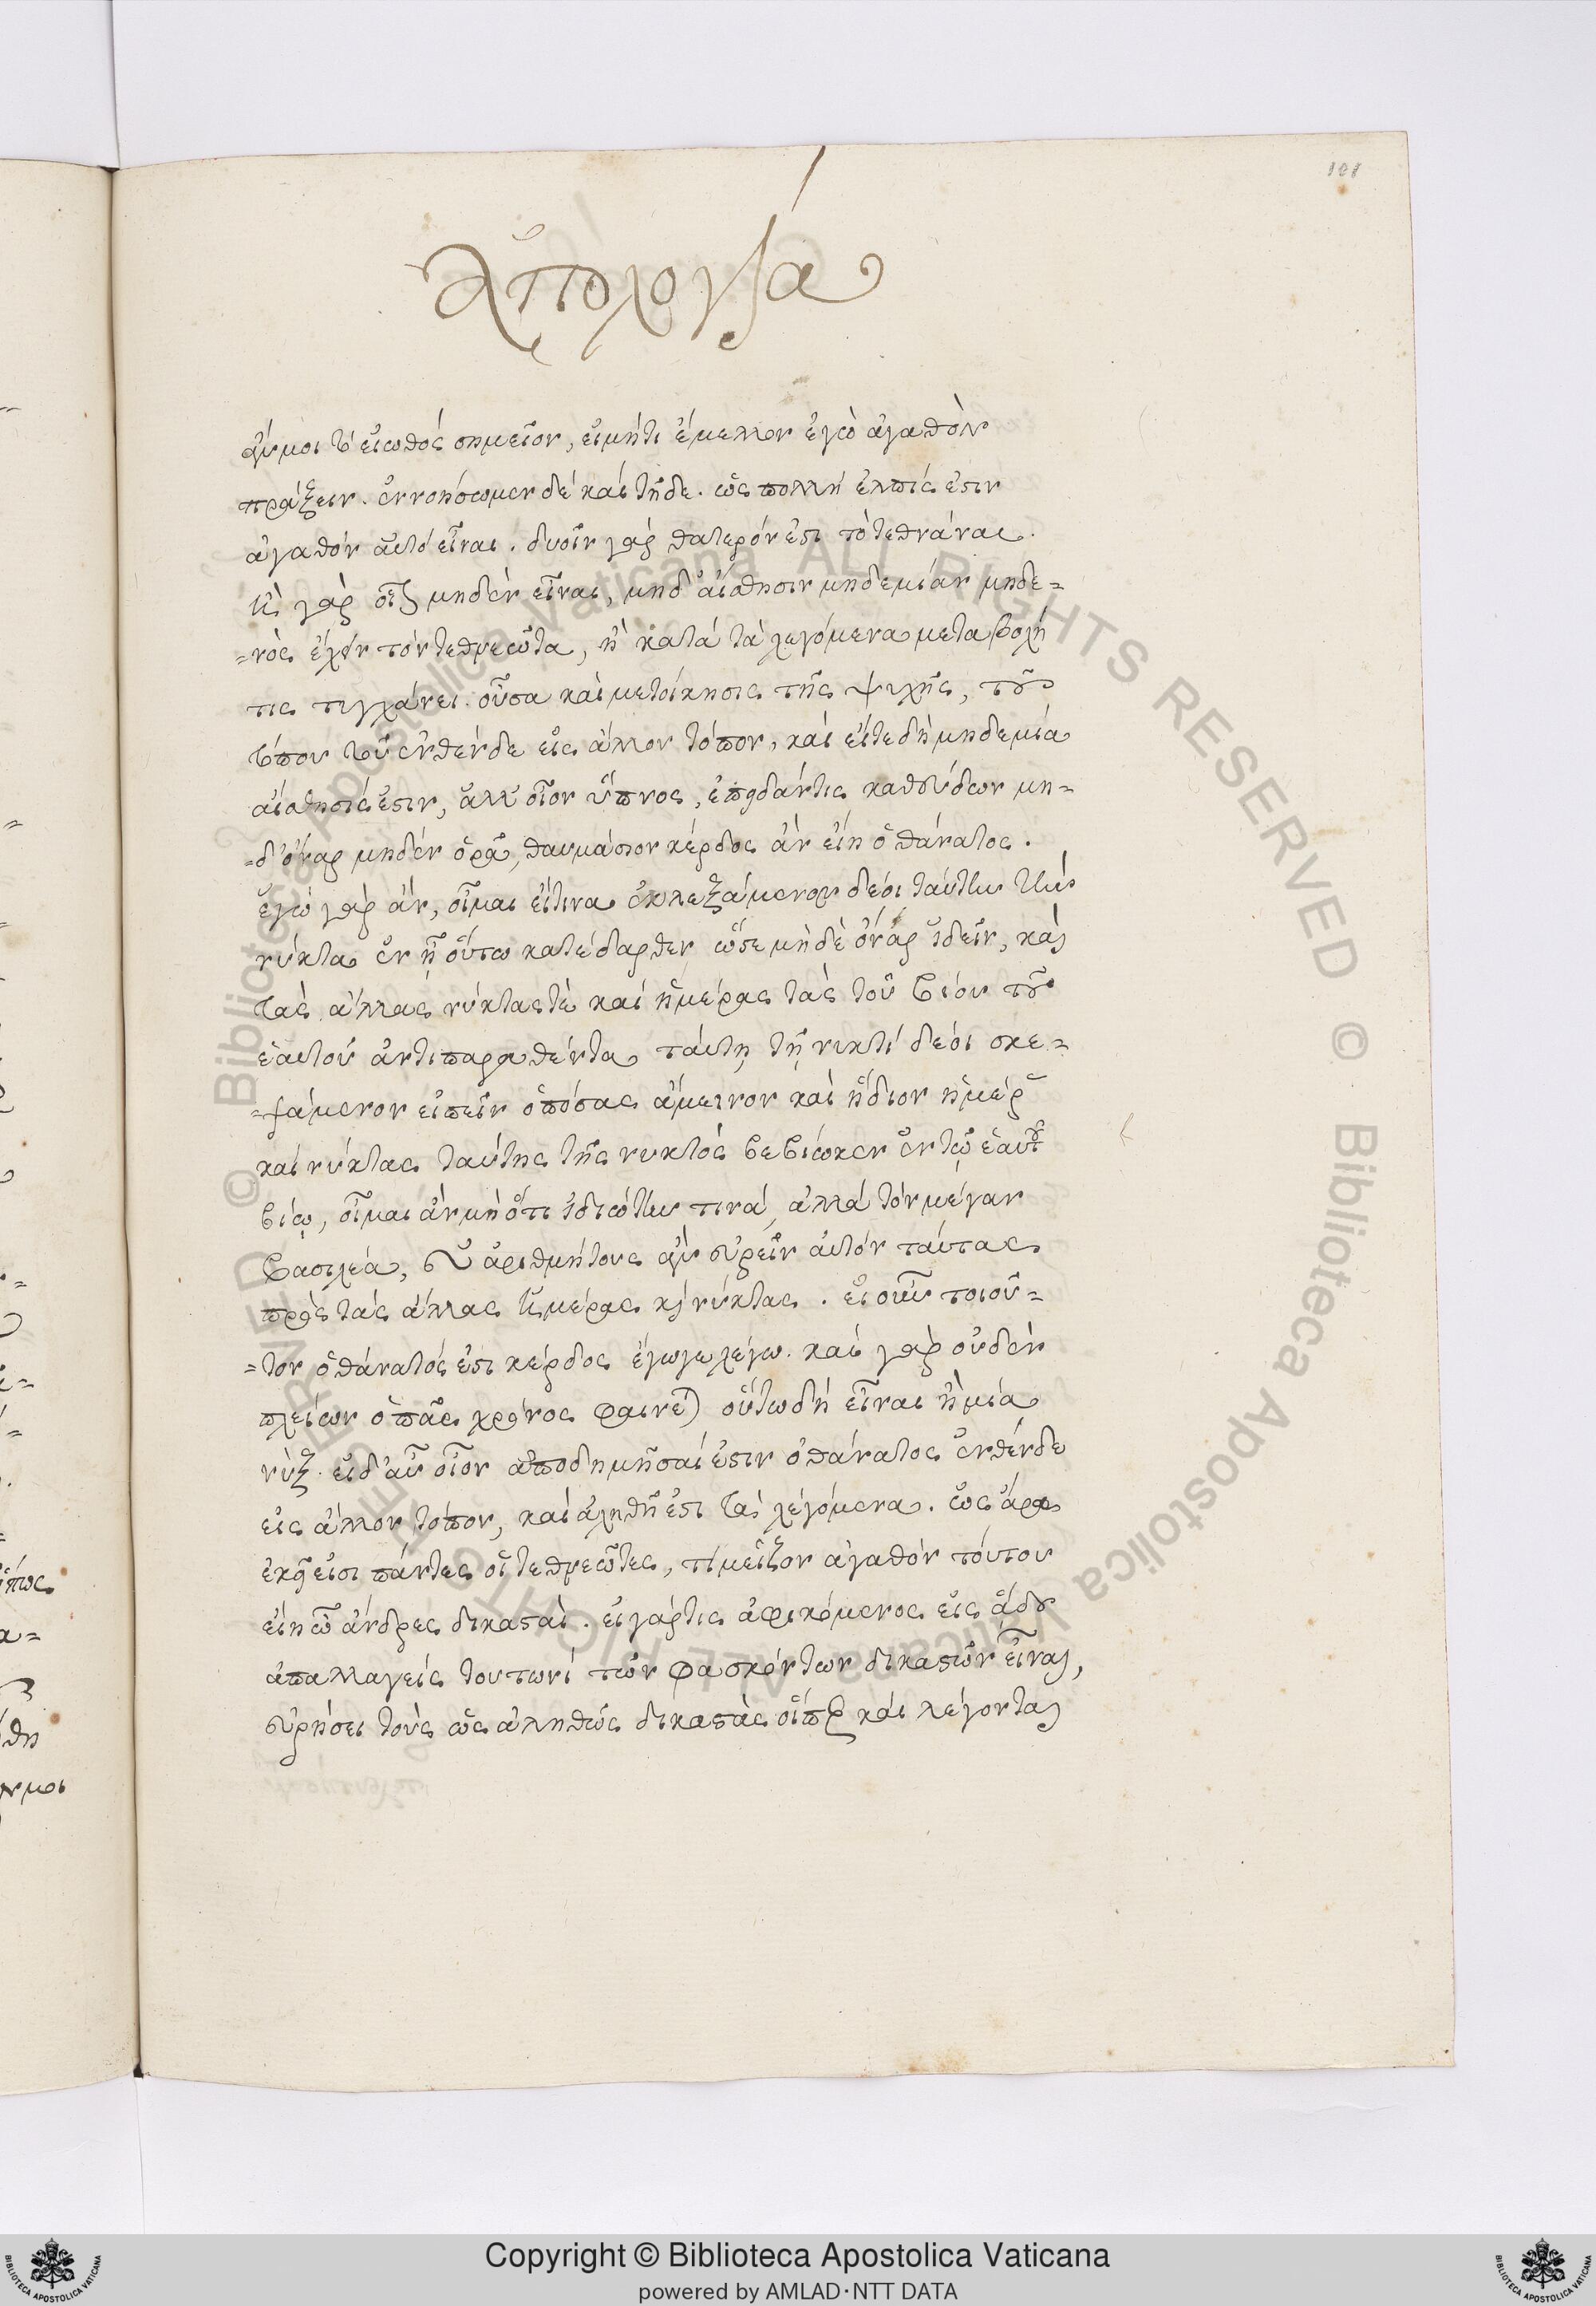 101
ἀπολογία
ἄν μοι τὸ εἰωθὸς σημεῖον, εἰ μήτι ἔμελλον ἐγὼ ἀγαθὸν
πράξειν. ἐννοήσωμεν δὲ καὶ τῇδε. ὡς πολλὴ ἐλπίς ἐστιν
ἀγαθὸν αὐτὸ εἶναι. δυοῖν γὰρ θάτερόν ἐστι τὸ τεθνάναι.
ἢ γὰρ οἷον μηδὲν εἶναι, μηδ' αἴσθησιν μηδεμίαν μηδε=
=νὸς ἔχειν τὸν τεθνεῶτα, ἢ κατὰ τὰ λεγόμενα μεταβολή
τις τυγχάνει οὖσα καὶ μετοίκησις τῆς ψυχῆς, τοῦ
τόπου τοῦ ἐνθένδε εἰς ἄλλον τόπον, καὶ εἴτε δὴ μηδεμία
αἴσθησίς ἐστιν, ἀλλ' οἷον ὕπνος, ἐπειδάν τις καθεύδων μη=
=δ' ὄναρ μηδὲν ὁρᾷ, θαυμάσιον κέρδος ἂν εἴη ὁ θάνατος.
ἐγὼ γὰρ ἂν, οἶμαι εἴ τινα ἐκλεξάμενον δέοι ταύτην τὴν
νύκτα ἐν ᾗ οὕτω κατέδαρθεν ὥστε μηδὲ ὄναρ ἰδεῖν, καὶ
τὰς ἄλλας νύκτας τὲ καὶ ἡμέρας τὰς τοῦ βίου τοῦ
ἑαυτοῦ ἀντιπαραθέντα ταύτῃ τῇ νυκτὶ δέοι σκε=
=ψάμενον εἰπεῖν ὁπόσας ἄμεινον καὶ ἥδιον ἡμέρας
καὶ νύκτας ταύτης τῆς νυκτὸς βεβίωκεν ἐν τῷ ἑαυτοῦ
βίῳ, οἶμαι ἂν μὴ ὅτι ἰδιώτην τινά, ἀλλὰ τὸν μέγαν
βασιλέα, εὐαριθμήτους ἂν εὑρεῖν αὐτὸν ταύτας
πρὸς τὰς ἄλλας ἡμέρας καὶ νύκτας. εἰ οὖν τοιοῦ=
=τον ὁ θάνατός ἐστι κέρδος ἔγωγε λέγω. καὶ γὰρ οὐδὲν
πλείων ὁ πᾶς χρόνος φαίνεται οὕτω δὴ εἶναι ἢ μία
νύξ. εἰ δ' αὖ οἷον ἀποδημῆσαί ἐστιν ὁ θάνατος ἐνθένδε
εἰς ἄλλον τόπον, καὶ ἀληθῆ ἐστι τὰ λεγόμενα. ὡς ἄρα
ἐκεῖ εἰσι πάντες οἱ τεθνεῶτες, τί μεῖζον ἀγαθὸν τούτου
εἴη ὦ ἄνδρες δικασταί. εἰ γάρ τις ἀφικόμενος εἰς ᾅδου
ἀπαλλαγεὶς τουτωνὶ τῶν φασκόντων δικαστῶν εἶναι,
εὑρήσει τοὺς ὡς ἀληθῶς δικαστὰς οἵπερ καὶ λέγονται
© Biblioteca Apostolica Vaticana ALL RIGHTS RESERVED
Copyright © Biblioteca Apostolica Vaticana
powered by AMLAD·NTT DATA
BIBLIOTECA APOSTOLICA VATICANA